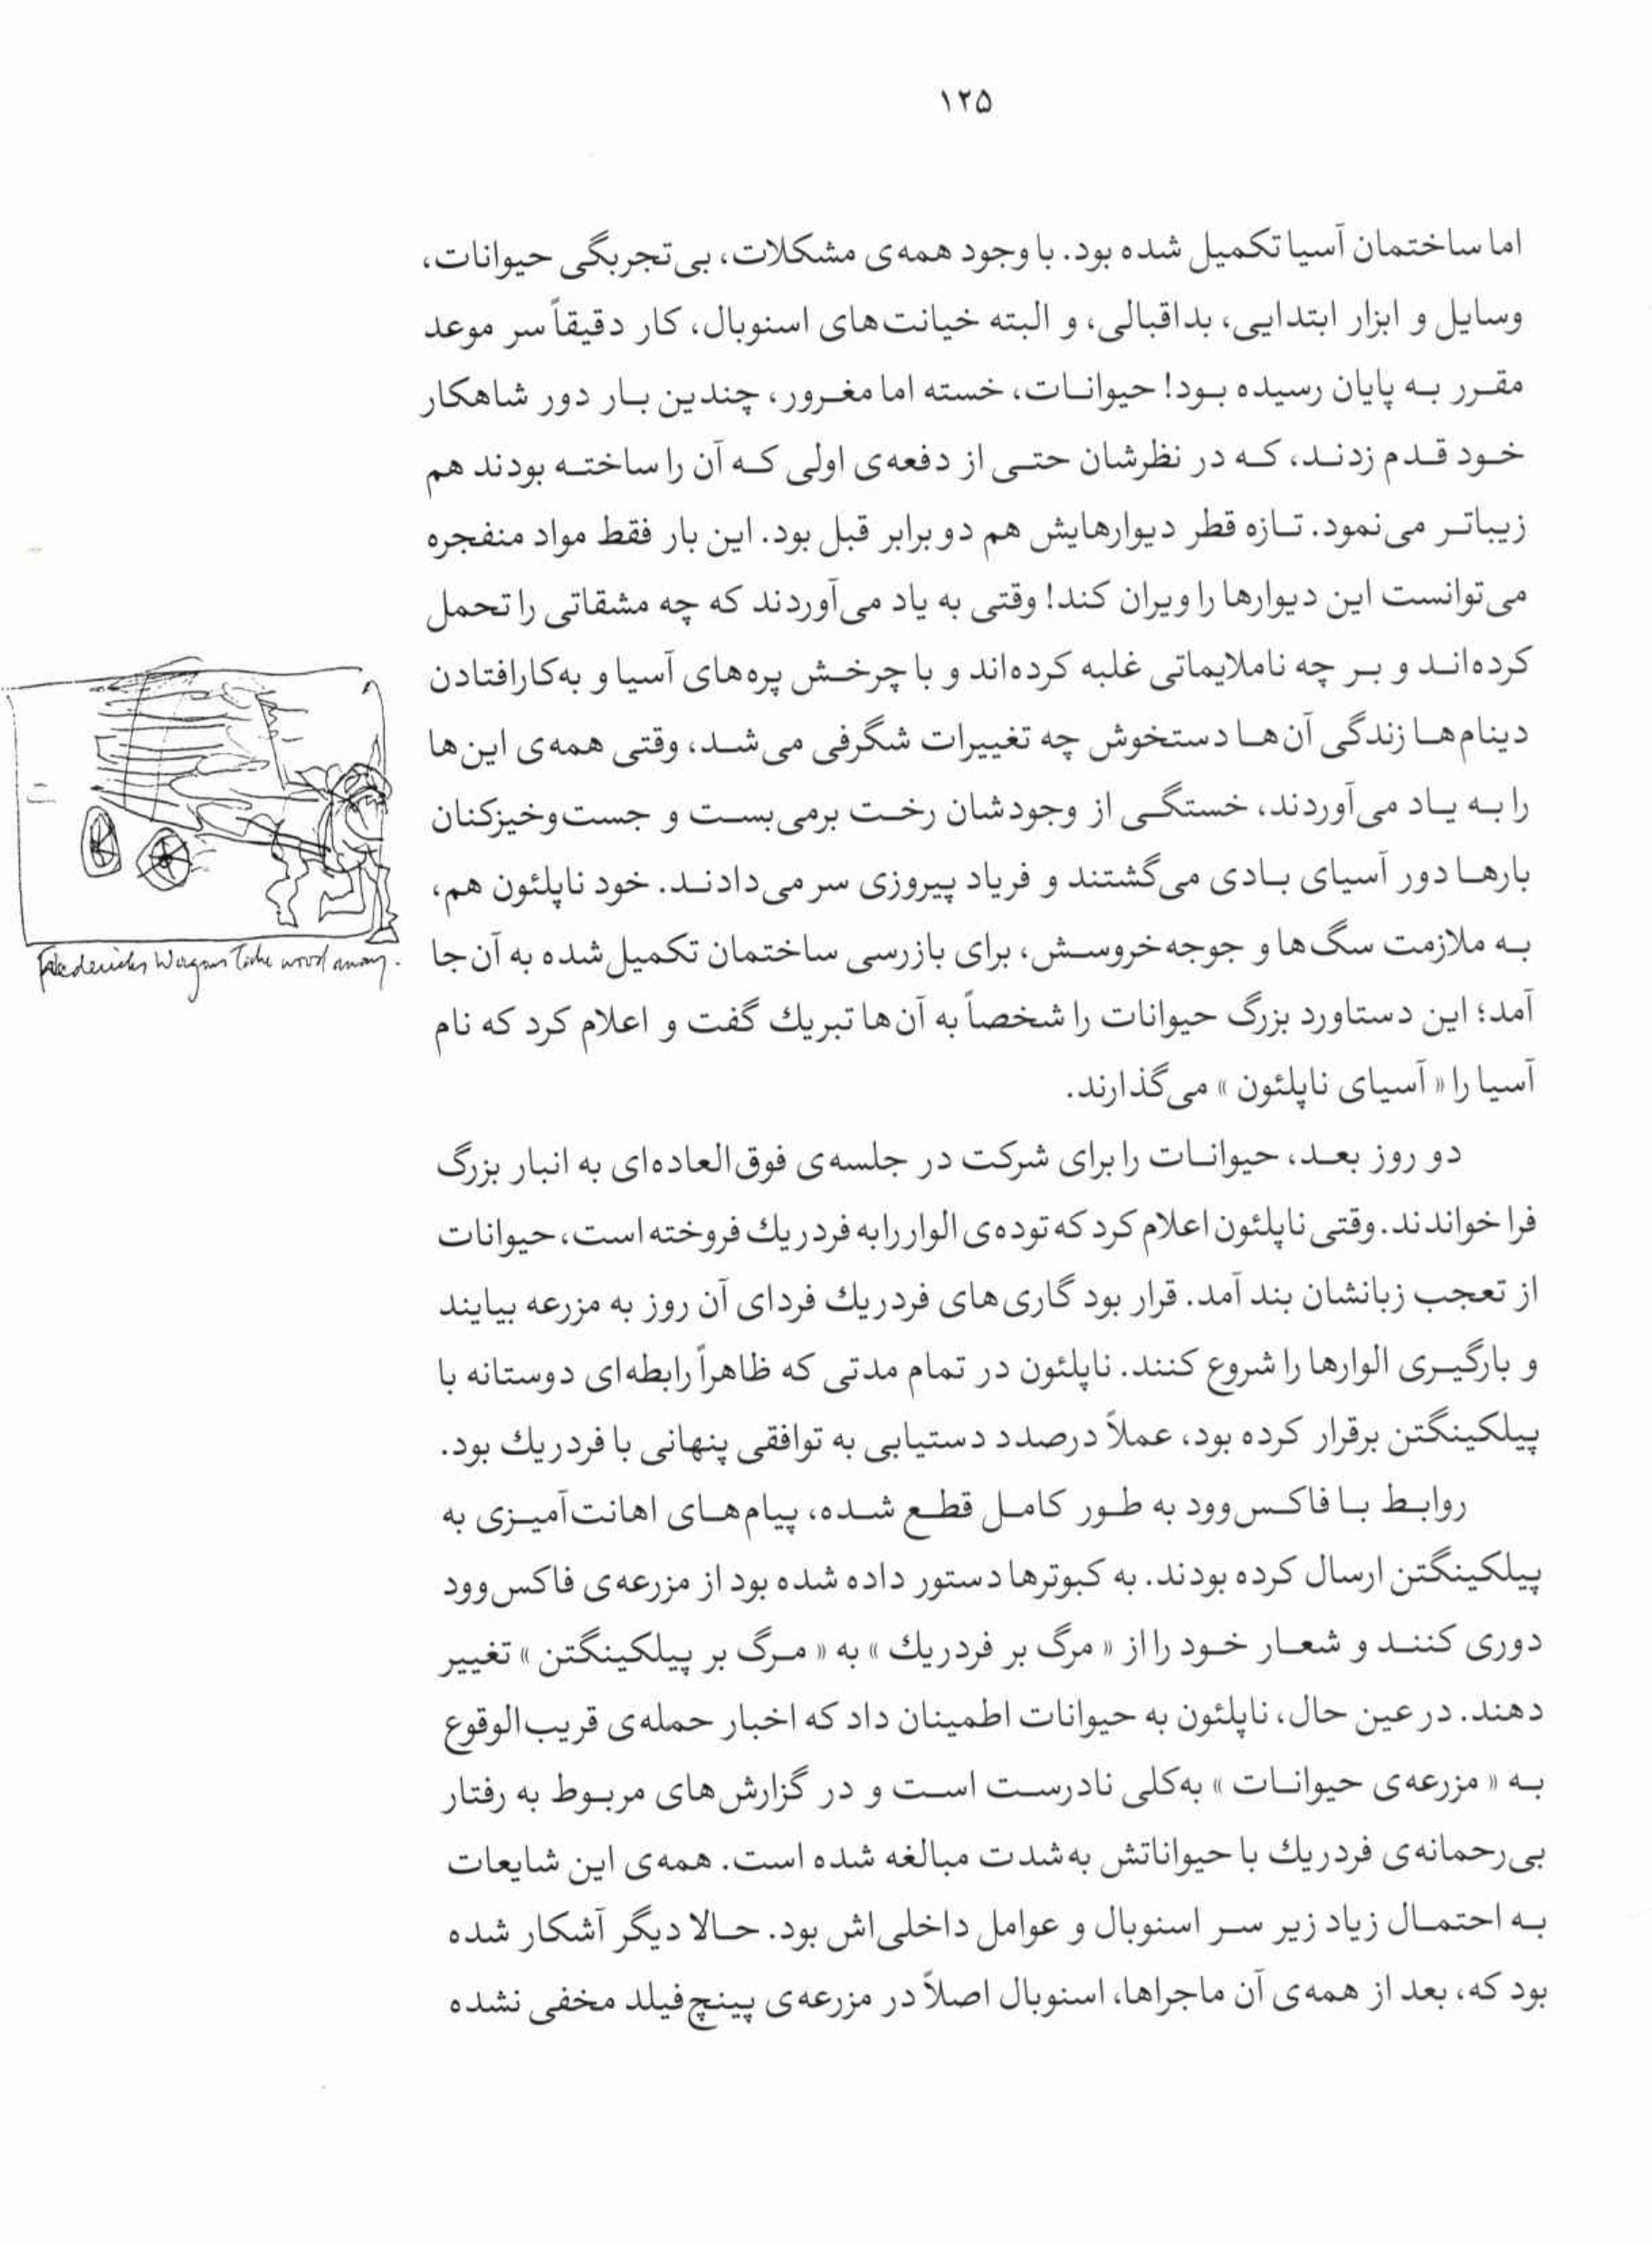 ۱۲۵
اما ساختمان آسیا تکمیل شده بود. با وجود همه‌ی مشکلات، بی‌تجربگی حیوانات،
وسایل و ابزار ابتدایی، بداقبالی، و البته خیانت‌های اسنوبال، کار دقیقاً سر موعد
مقرر به پایان رسیده بود! حیوانات، خسته اما مغرور، چندین بار دور شاهکار
خود قدم زدند، که در نظرشان حتی از دفعه‌ی اولی که آن را ساخته بودند هم
زیباتر می‌نمود. تازه قطر دیوارهایش هم دو برابر قبل بود. این بار فقط مواد منفجره
می‌توانست این دیوارها را ویران کند! وقتی به یاد می‌آوردند که چه مشقاتی را تحمل
کرده‌اند و بر چه ناملایماتی غلبه کرده‌اند و با چرخش پره‌های آسیا و به‌کارافتادن
دینام‌ها زندگی آن‌ها دستخوش چه تغییرات شگرفی می‌شد، وقتی همه‌ی این‌ها
را به یاد می‌آوردند، خستگی از وجودشان رخت برمی‌بست و جست‌وخیزکنان
بارها دور آسیای بادی می‌گشتند و فریاد پیروزی سر می‌دادند. خود ناپلئون هم،
به ملازمت سگ‌ها و جوجه‌خروسش، برای بازرسی ساختمان تکمیل‌شده به آن‌جا
آمد؛ این دستاورد بزرگ حیوانات را شخصاً به آن‌ها تبریك گفت و اعلام کرد که نام
آسیا را « آسیای ناپلئون » می‌گذارند.
دو روز بعد، حیوانات را برای شرکت در جلسه‌ی فوق‌العاده‌ای به انبار بزرگ
فرا خواندند. وقتی ناپلئون اعلام کرد که توده‌ی الوار را به فردریك فروخته است، حیوانات
از تعجب زبانشان بند آمد. قرار بود گاری‌های فردریك فردای آن روز به مزرعه بیایند
و بارگیری الوارها را شروع کنند. ناپلئون در تمام مدتی که ظاهراً رابطه‌ای دوستانه با
پیلکینگتن برقرار کرده بود، عملاً درصدد دستیابی به توافقی پنهانی با فردریك بود.
روابط با فاکس‌وود به طور کامل قطع شده، پیام‌های اهانت‌آمیزی به
پیلکینگتن ارسال کرده بودند. به کبوترها دستور داده شده بود از مزرعه‌ی فاکس‌وود
دوری کنند و شعار خود را از « مرگ بر فردریك » به « مرگ بر پیلکینگتن » تغییر
دهند. در عین حال، ناپلئون به حیوانات اطمینان داد که اخبار حمله‌ی قریب‌الوقوع
به « مزرعه‌ی حیوانات » به‌کلی نادرست است و در گزارش‌های مربوط به رفتار
بی‌رحمانه‌ی فردریك با حیواناتش به‌شدت مبالغه شده است. همه‌ی این شایعات
به احتمال زیاد زیر سر اسنوبال و عوامل داخلی‌اش بود. حالا دیگر آشکار شده
بود که، بعد از همه‌ی آن ماجراها، اسنوبال اصلاً در مزرعه‌ی پینچ‌فیلد مخفی نشده
Fredericks Wagons Take wood away.